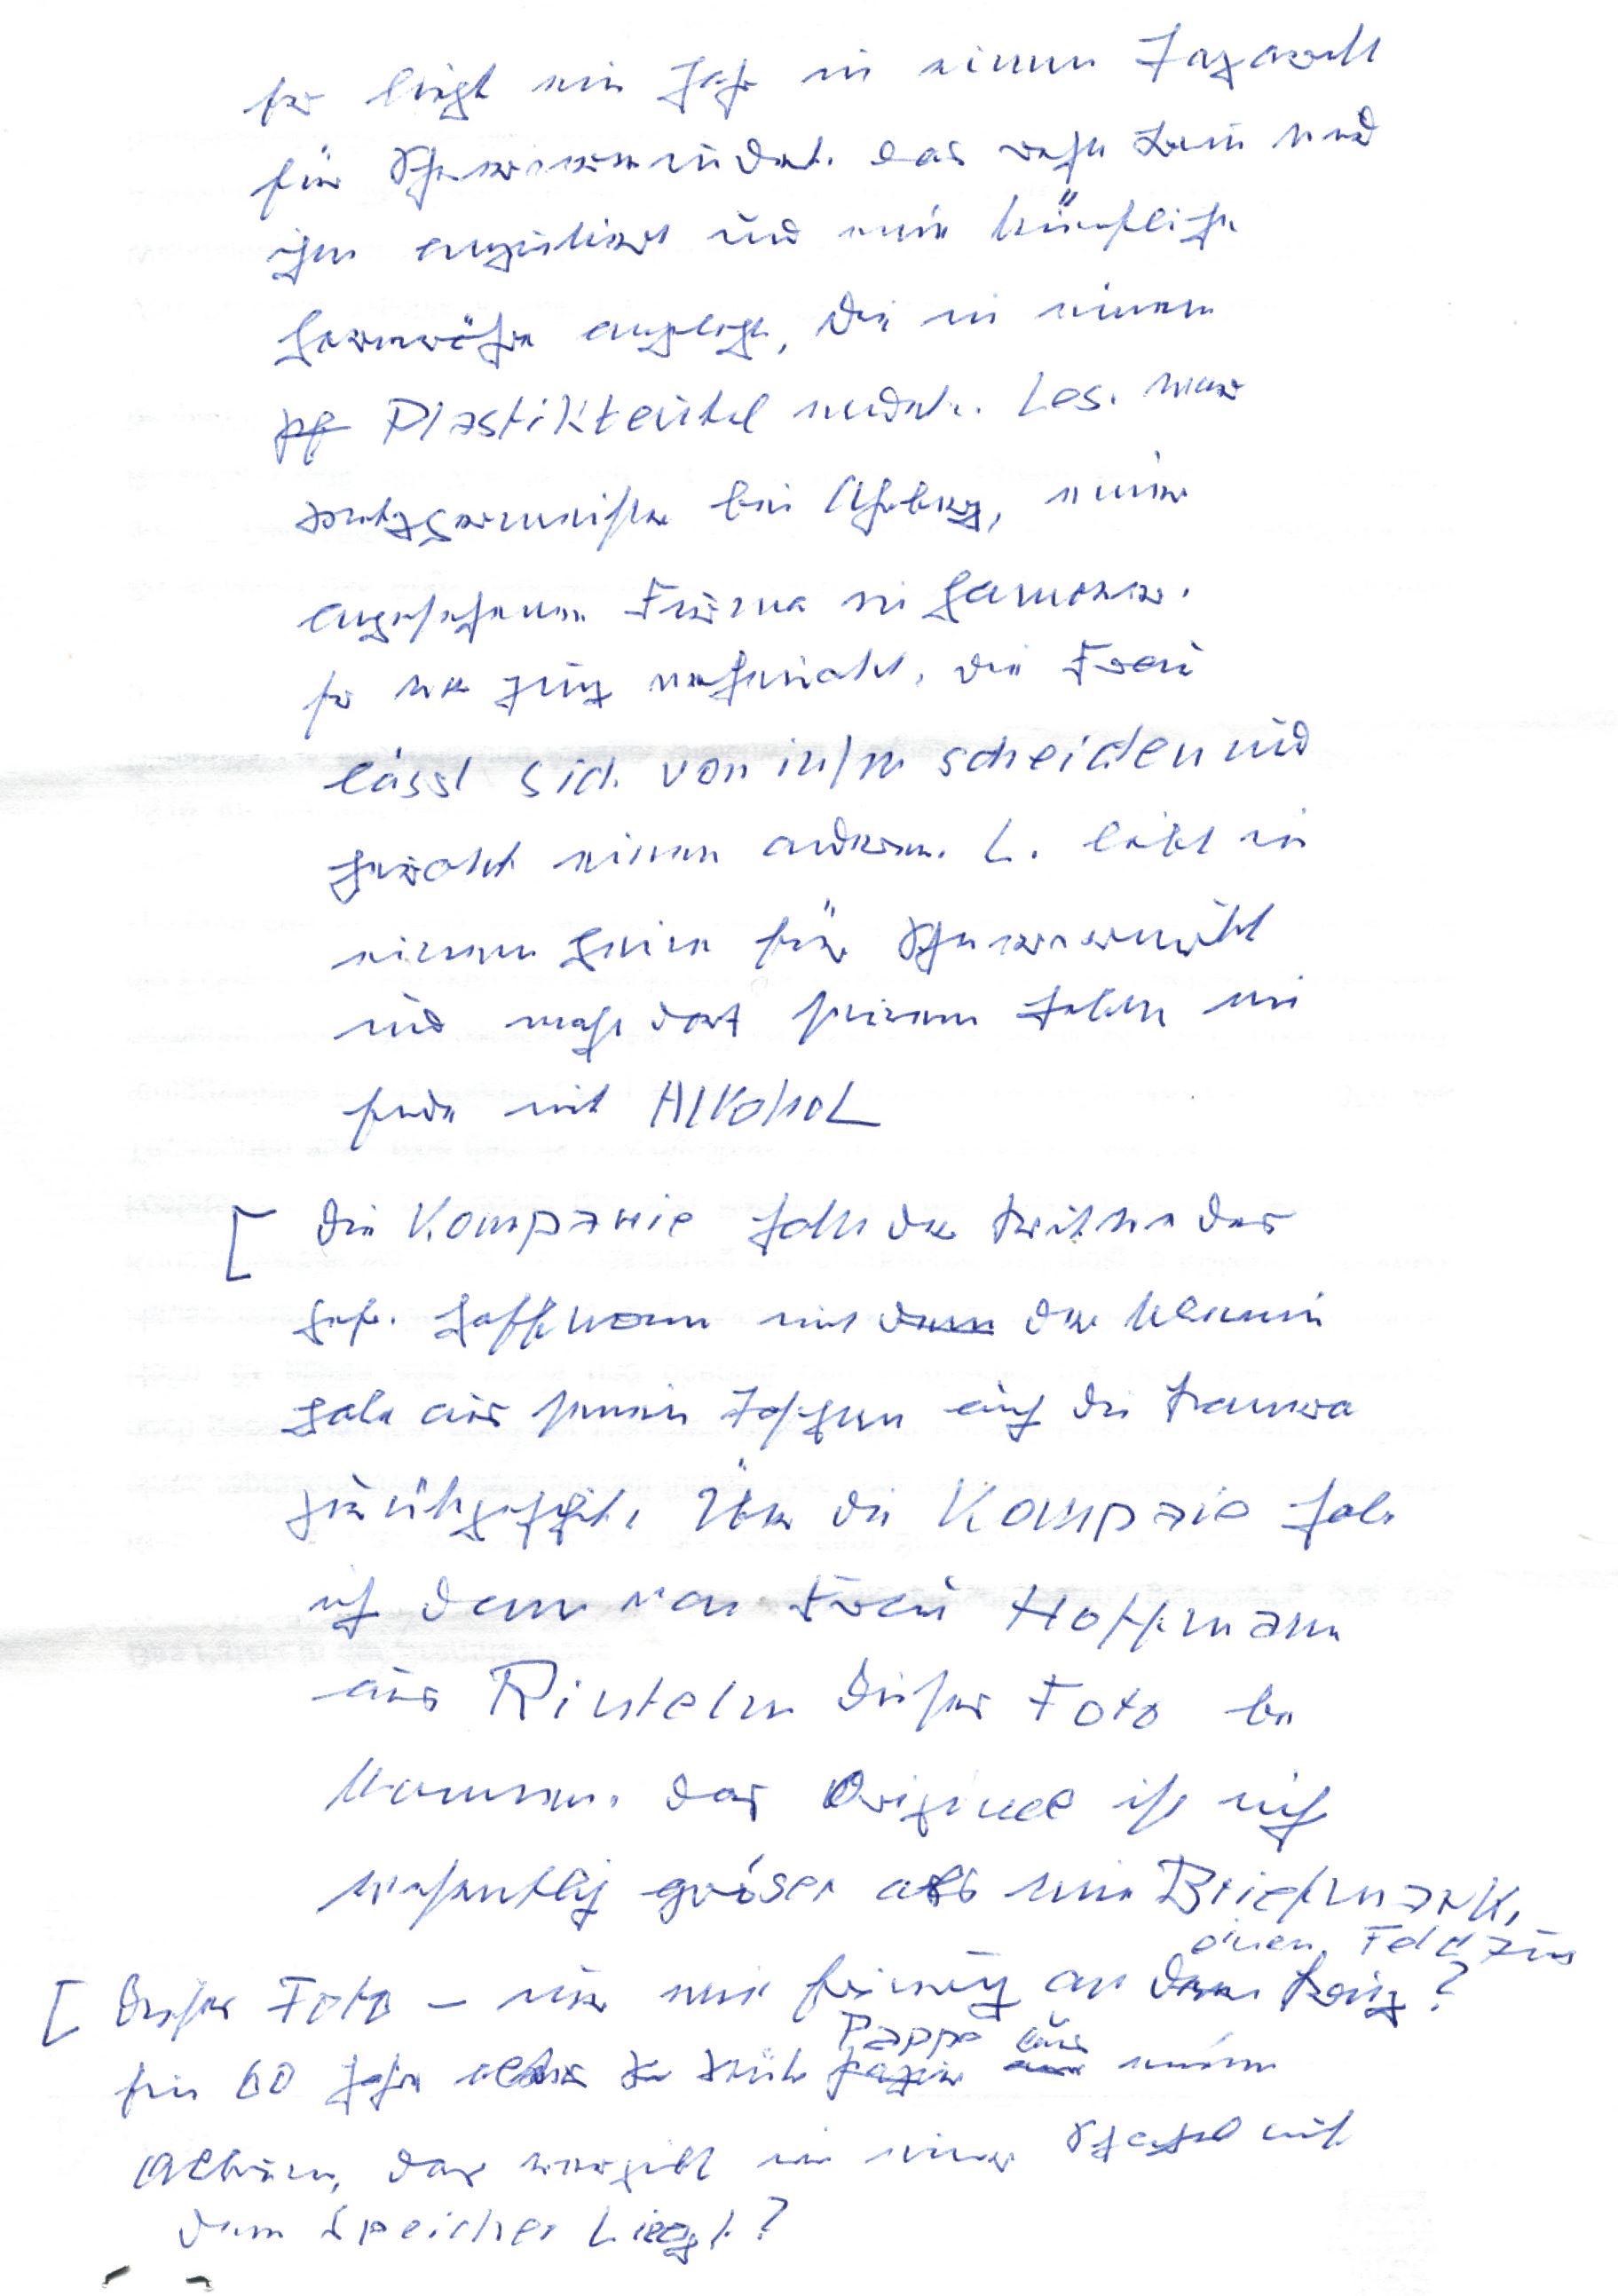 Er liegt ein Jahr in einem Lazarett
für Schwerverwundete. Das rechte Bein wird
ihm amputiert und eine künstliche
Harnröhre angelegt, die in einem
Plastikbeutel endet. L. war
bei Ahlborg, einer
angesehenen Firma in Hannover.
Er war jung verheiratet, die Frau
lässt sich von ihm scheiden und
heiratet einen anderen. L. lebt in
einem Heim für Schwerversehrte
und macht dort seinem Leben ein
Ende mit Alkohol
[ Die Kompanie hatte der Briten der
Gefr. Hoffmann mit der Kamin
habe aus seinen auf die Kamera
zurückgeführt. Über die Kompanie habe
ich dann von Frau Hoffmann
aus Rinteln dieses Foto be
kommen. Das Original ist nicht
wesentlich gröser als eine Briefmarke,
einen Feldzug
[ Dieses Foto – nur eine Erinnerung an den Krieg?
Pappe aus
Ein 60 Jahre altes Stück meinem
Album, das vergilbt in einer Schachtel auf
dem Speicher Liegt?